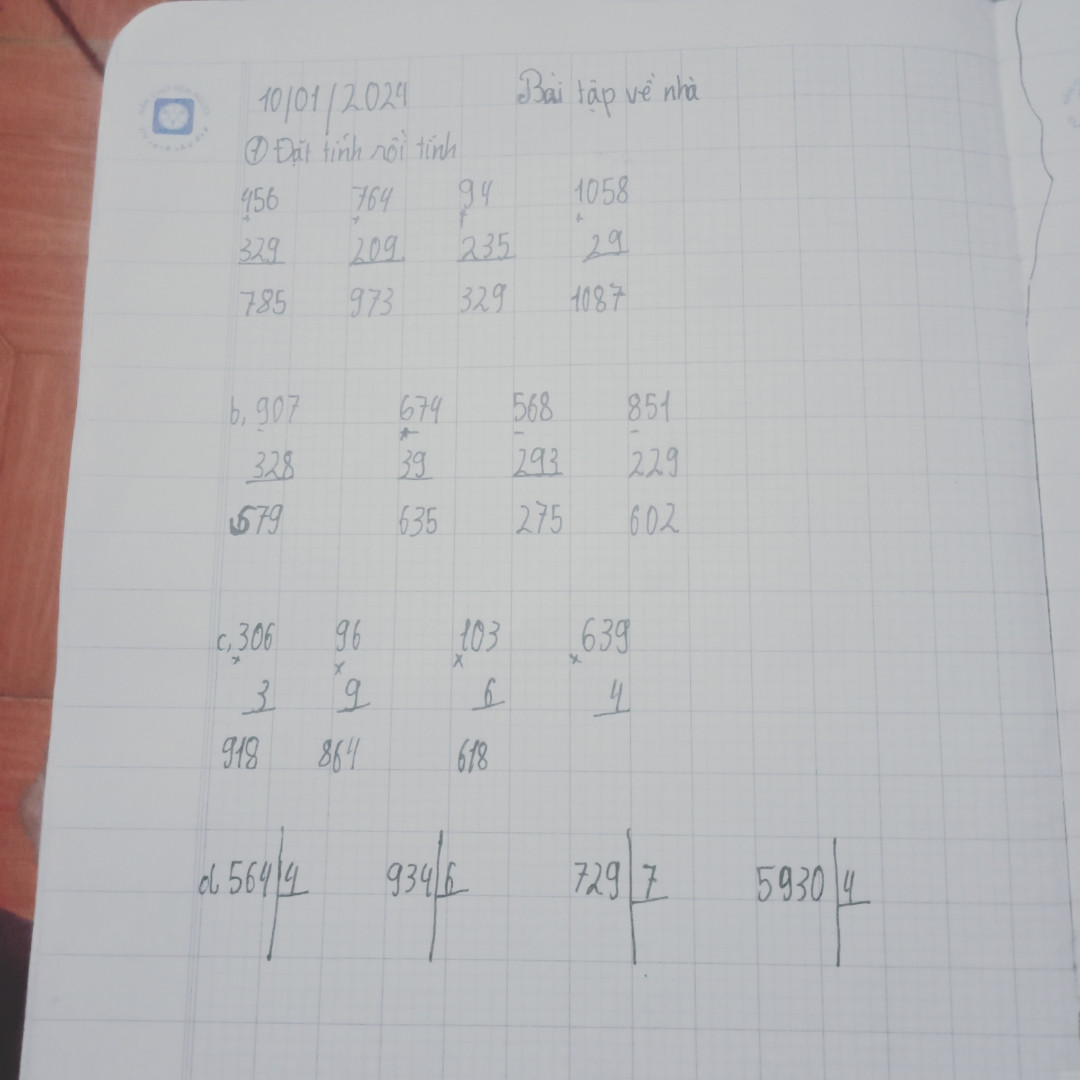 10/01/2024 Bài tập về nhà
① Đặt tính rồi tính
456 764 94 1058
+ + + +
329 209 235 29
785 973 329 1087
b, 907 674 568 851
- - - -
328 39 293 229
579 635 275 602
c, 306 96 103 639
x x x x
3 9 6 4
918 864 618
d 564 4 934 6 729 7 5930 4